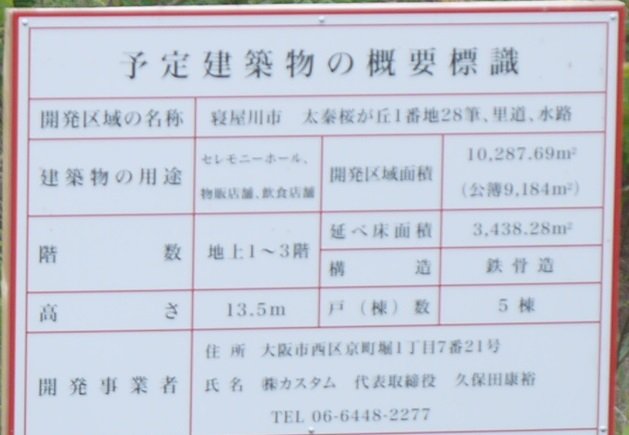 予定建築物の概要標識
開発区域の名称 寝屋川市 太秦桜が丘1番地28筆、里道、水路
建築物の用途 セレモニーホール、
物販店舗、飲食店舗
開発区域面積 10,287.69m²
(公簿9,184m²)
階数 地上1～3階
延べ床面積 3,438.28m²
構造 鉄骨造
高さ 13.5m 戸(棟)数 5棟
開発事業者
住所 大阪市西区京町堀1丁目7番21号
氏名 ㈱カスタム 代表取締役 久保田康裕
TEL 06-6448-2277